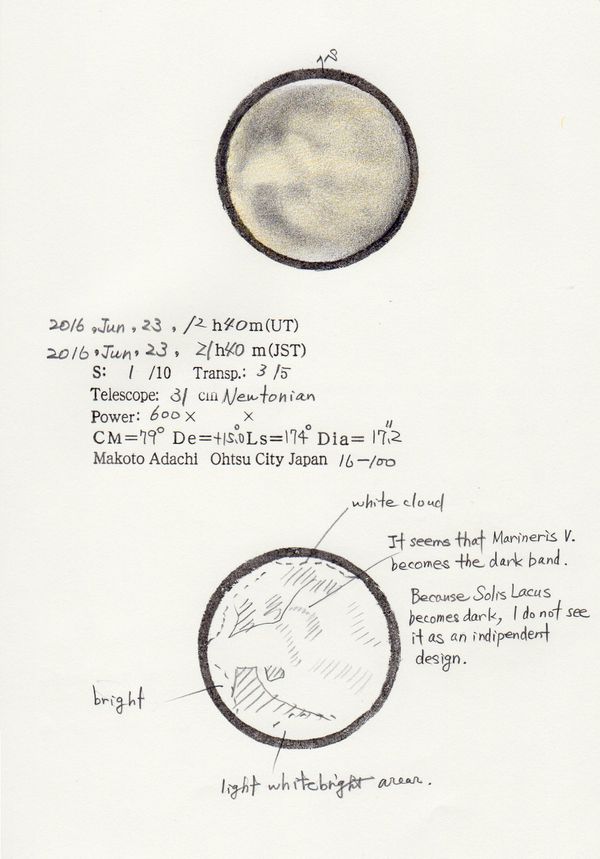 2016, Jun, 23, 12 h40m(UT)
2016, Jun, 23, 21h40 m(JST)
S: 1 /10 Transp.: 3 /5
Telescope: 31 cm Newtonian
Power: 600× ×
CM=79° De=+15.0° Ls=174° Dia= 17."2
Makoto Adachi Ohtsu City Japan 16-100
white cloud
It seems that Marineris V.
becomes the dark band.
Because Solis Lacus
becomes dark, I do not see
it as an indipendent
design.
bright
light whitebright arear.